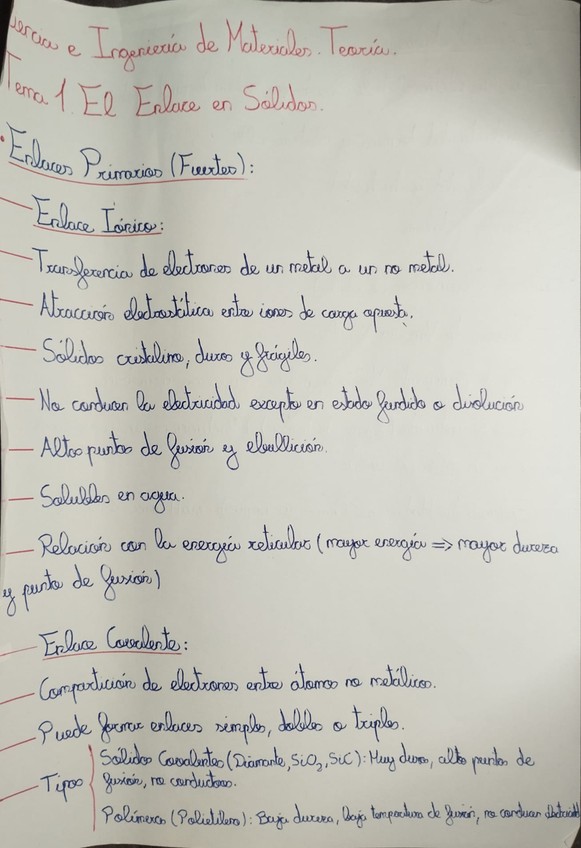 encia e Ingeniería de Materiales. Teoría.
Tema 1. El Enlace en Sólidos.
Enlaces Primarios (Fuertes):
Enlace Iónico:
Transferencia de electrones de un metal a un no metal.
Atracción electrostática entre iones de carga opuesta.
Sólidos cristalino, duros y frágiles.
No conducen la electricidad excepto en estado fundido o disolución
Altos puntos de fusión y ebullición.
Solubles en agua.
Relación con la energía reticular (mayor energía => mayor dureza
y punto de fusión)
Enlace Covalente:
Compartición de electrones entre átomos no metálicos.
Puede formar enlaces simples, dobles o triples.
Tipos
Sólidos Covalentes (Diamante, SiO2, SiC): Muy duros, alto puntos de
fusión, no conductores.
Polímeros (Polietileno): Baja dureza, baja temperatura de fusión, no conducen electricidad